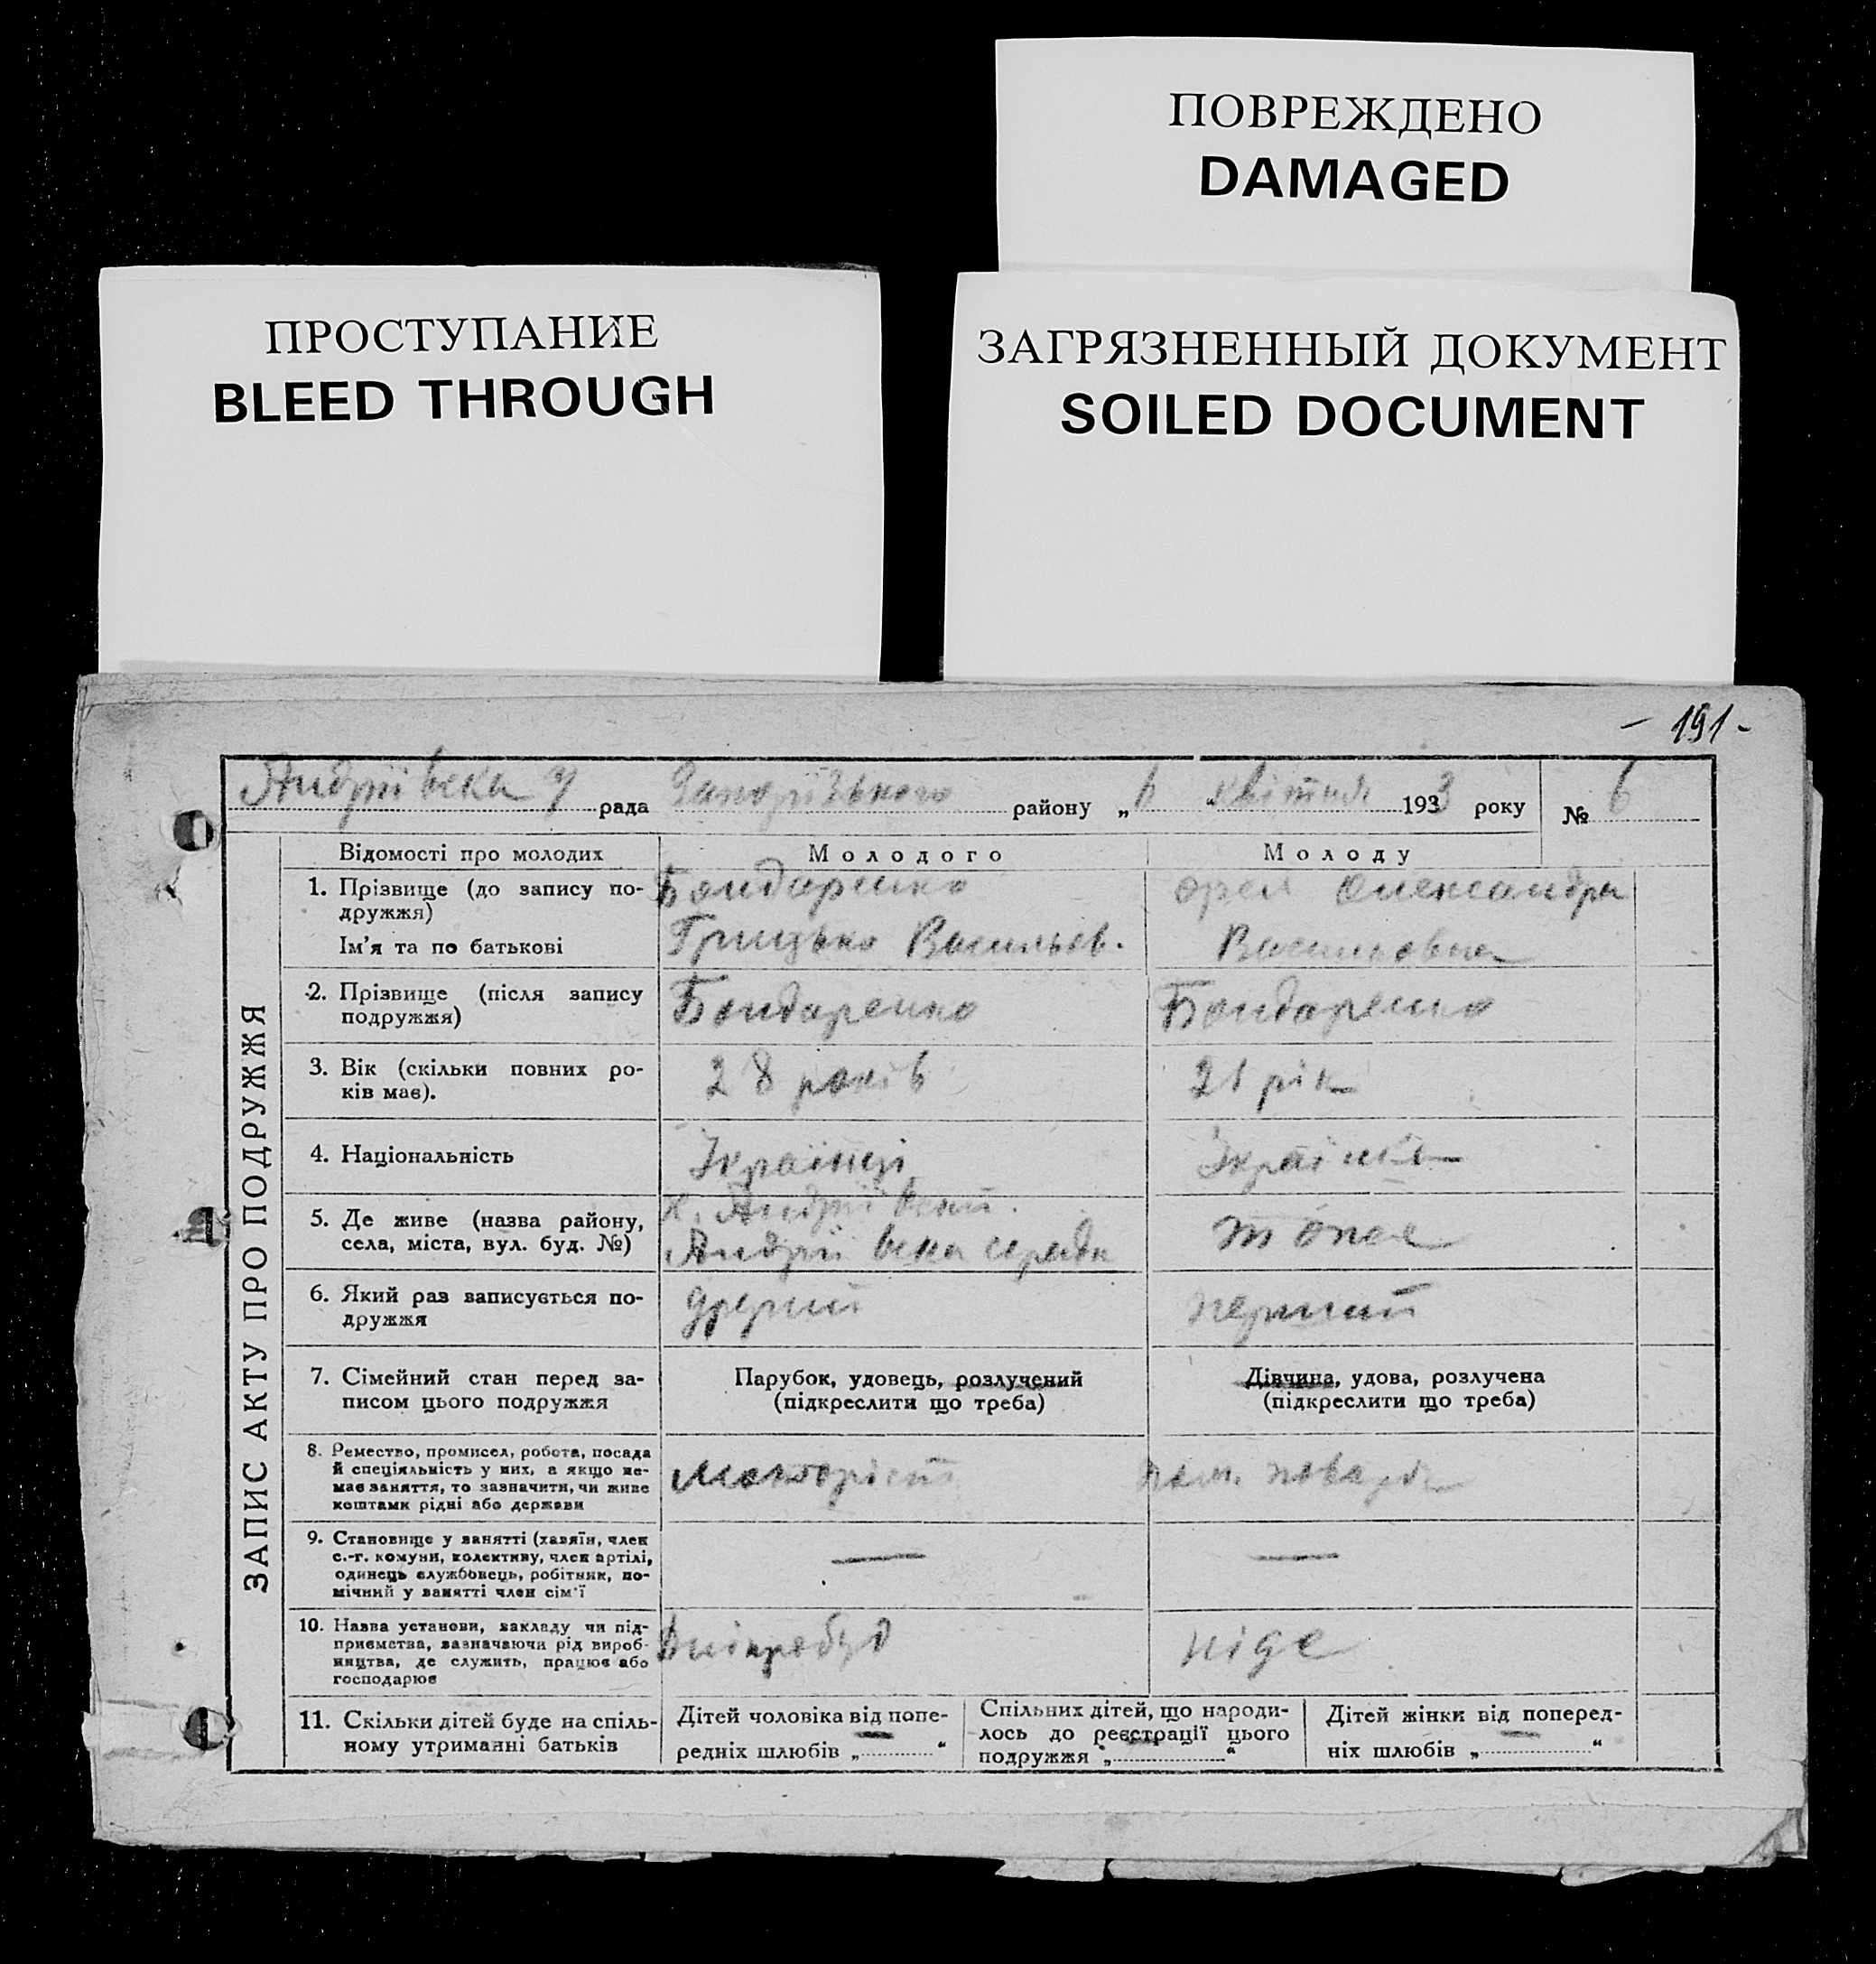 ПОВРЕЖДЕНО
DAMAGED
ПРОСТУПАНИЕ
BLEED THROUGH
ЗАГРЯЗНЕННЫЙ ДОКУМЕНТ
SOILED DOCUMENT
- 191 -
рада Запорізького району „6 “ квітня 1933 року № 6
ЗАПИС АКТУ ПРО ПОДРУЖЖЯ
Відомості про молодих Молодого Молоду
1. Прізвище (до запису по-
дружжя)
Бондаренко
Орел Олександра
Ім'я та по батькові
Грицько Васильов.
Васильовна
2. Прізвище (після запису
подружжя)
Бондаренко
Бондаренко
3. Вік (скільки повних ро-
ків має).
28 років
21 рік
4. Національність
5. Де живе (назва району,
села, міста, вул. буд. №)
6. Який раз записується по-
дружжя
перший
7. Сімейний стан перед за-
писом цього подружжя
Парубок, удовець, розлучений
(підкреслити що треба)
Дівчина, удова, розлучена
(підкреслити що треба)
8. Ремество, промисел, робота, посада
й спеціяльність у них, а якщо не-
має заняття, то зазначити, чи живе
коштами рідні або держави
Моторіст
пом. повара
9. Становище у занятті (хазяїн, член
с.-г. комуни, колективу, член артілі,
одинець службовець, робітник, по-
мічний у занятті член сім'ї
—
—
10. Назва установи, закладу чи під-
приємства, зазначаючи рід вироб-
ництва, де служить, працює або
господарює
Дніпробуд
ніде
11. Скільки дітей буде на спіль-
ному утриманні батьків
Дітей чоловіка від попе-
редніх шлюбів „ — “
Спільних дітей, що народи-
лось до реєстрації цього
подружжя „ — “
Дітей жінки від поперед-
ніх шлюбів „ — “